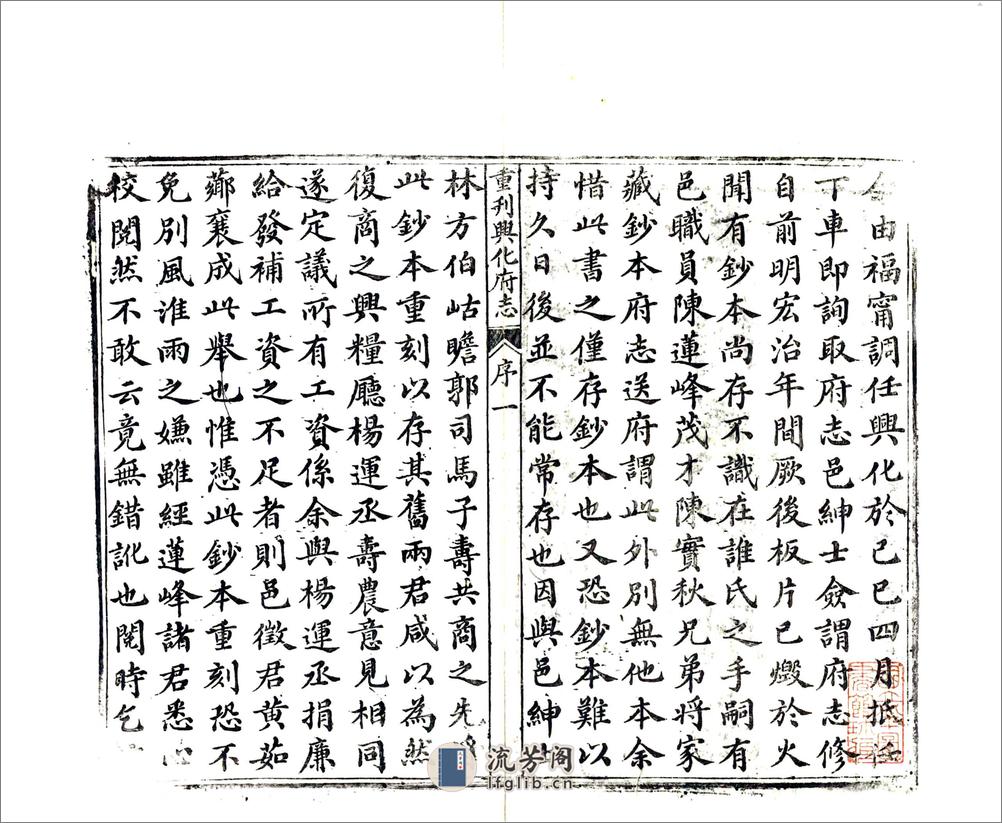 余由福甯調任興化於己巳四月抵任
下車即詢取府志邑紳士僉謂府志修
自前明宏治年間厥後板片已燬於火
聞有鈔本尚存不識在誰氏之手嗣有
邑職員陳蓮峰茂才陳實秋兄弟將家
藏鈔本府志送府謂此外別無他本余
惜此書之僅存鈔本也又恐鈔本難以
持久日後並不能常存也因與邑紳
重刊興化府志 序 一
林方伯岵瞻郭司馬子壽共商之先
此鈔本重刻以存其舊兩君咸以為然
復商之興糧廳楊運丞壽農意見相同
遂定議所有工資係余與楊運丞捐廉
給發補工資之不足者則邑徵君黃茹
薌襄成此舉也惟憑此鈔本重刻恐不
免別風淮雨之嫌雖經蓮峰諸君悉心
校閱然不敢云竟無錯訛也閱時乞
流芳阁
lfglib.cn